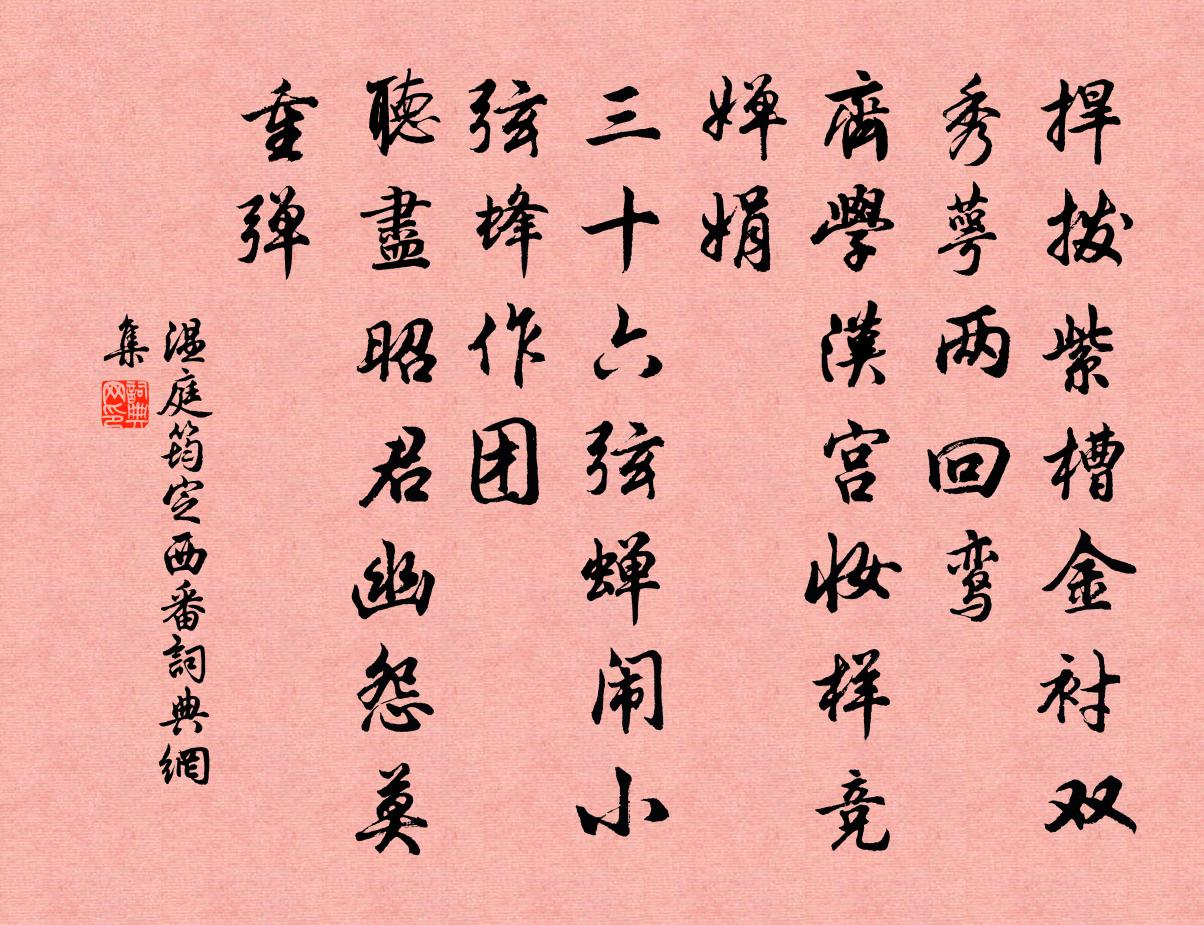 捍拨紫槽金衬双
秀萼两回鸾
齊學漢宫妆样竞
婵娟
三十六弦蝉闹小
弦蜂作团
聽盡昭君幽怨莫
重弹
温庭筠定西番詞典網
集
詞典
网印